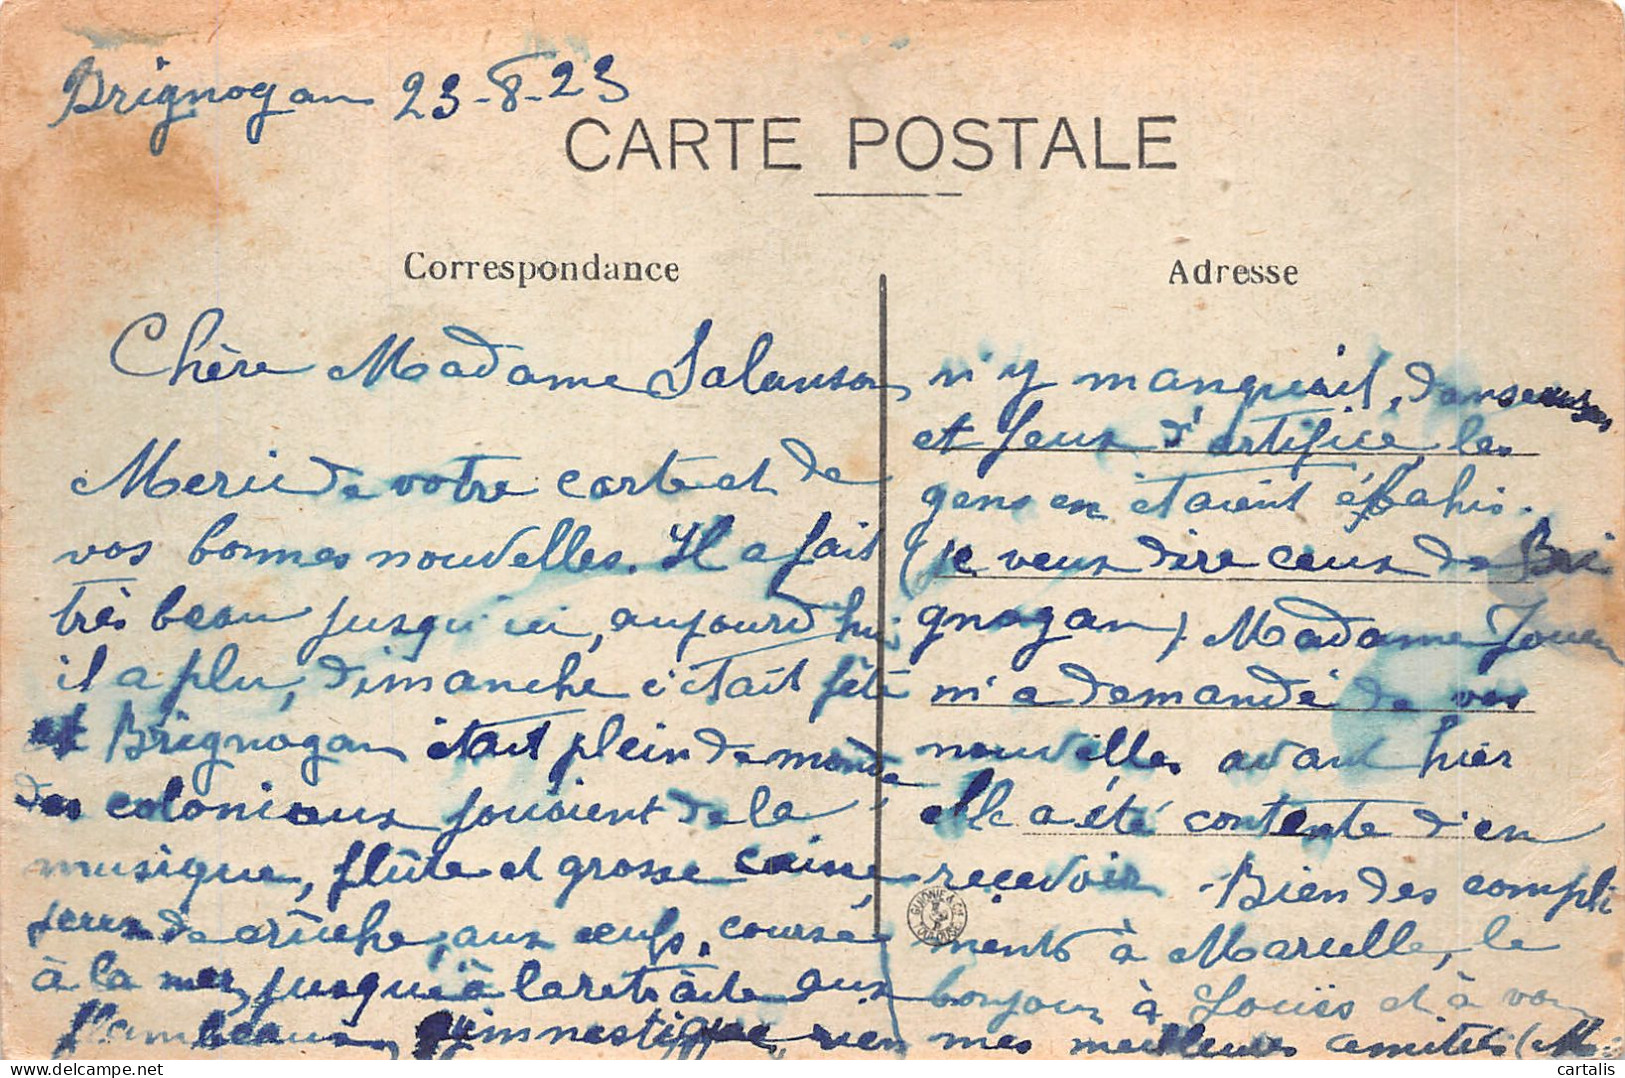 Brignogan 23-8-23
CARTE POSTALE
Correspondance
Adresse
Chère Madame Salanson
Merci de votre carte et de
vos bonnes nouvelles. Il a fait
très beau jusqu'ici, aujourd'hui
il a plu, dimanche c'était fête
et Brignogan était plein de monde
des coloniaux jouaient de la
musique, flûte et grosse caisse
jeux de cruche, aux œufs, course
à la mer, jusqu'à la retraite aux
flambeaux, gymnestique, rien
n'y manquait, danseuses
et feux d'artifice, les
gens en étaient ébahis.
(je veux dire ceux de Bri
gnogan) Madame
m'a demandé de vos
nouvelles avant hier
elle a été contente d'en
recevoir - Bien des compli
ments à Marcelle, le
bonjour à Louis et à vous
mes meilleures amitiés (M
GUIONIE & Cie TOULOUSE
https://www.delcampe.net
cartalis